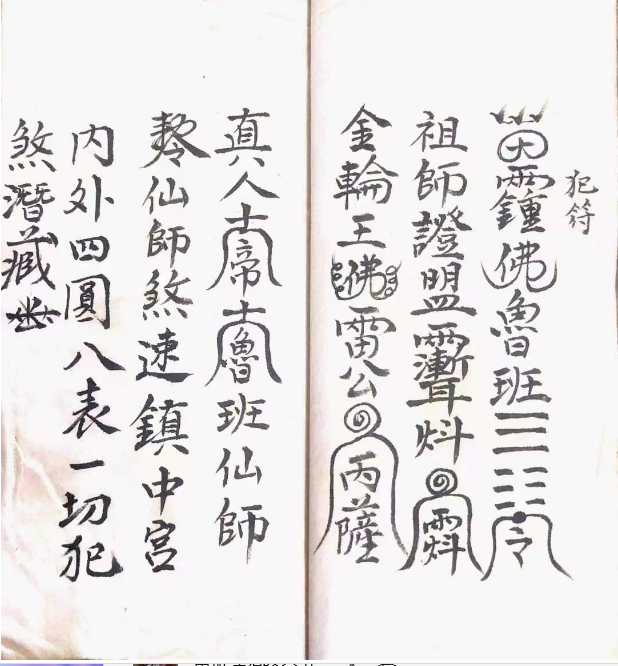 犯符
佛魯班☰☷令
祖師證盟
金輪王佛雷公丙薩
真人帝魯班仙師
仙師煞速鎮中宮
内外四圓八表一切犯
煞潛藏